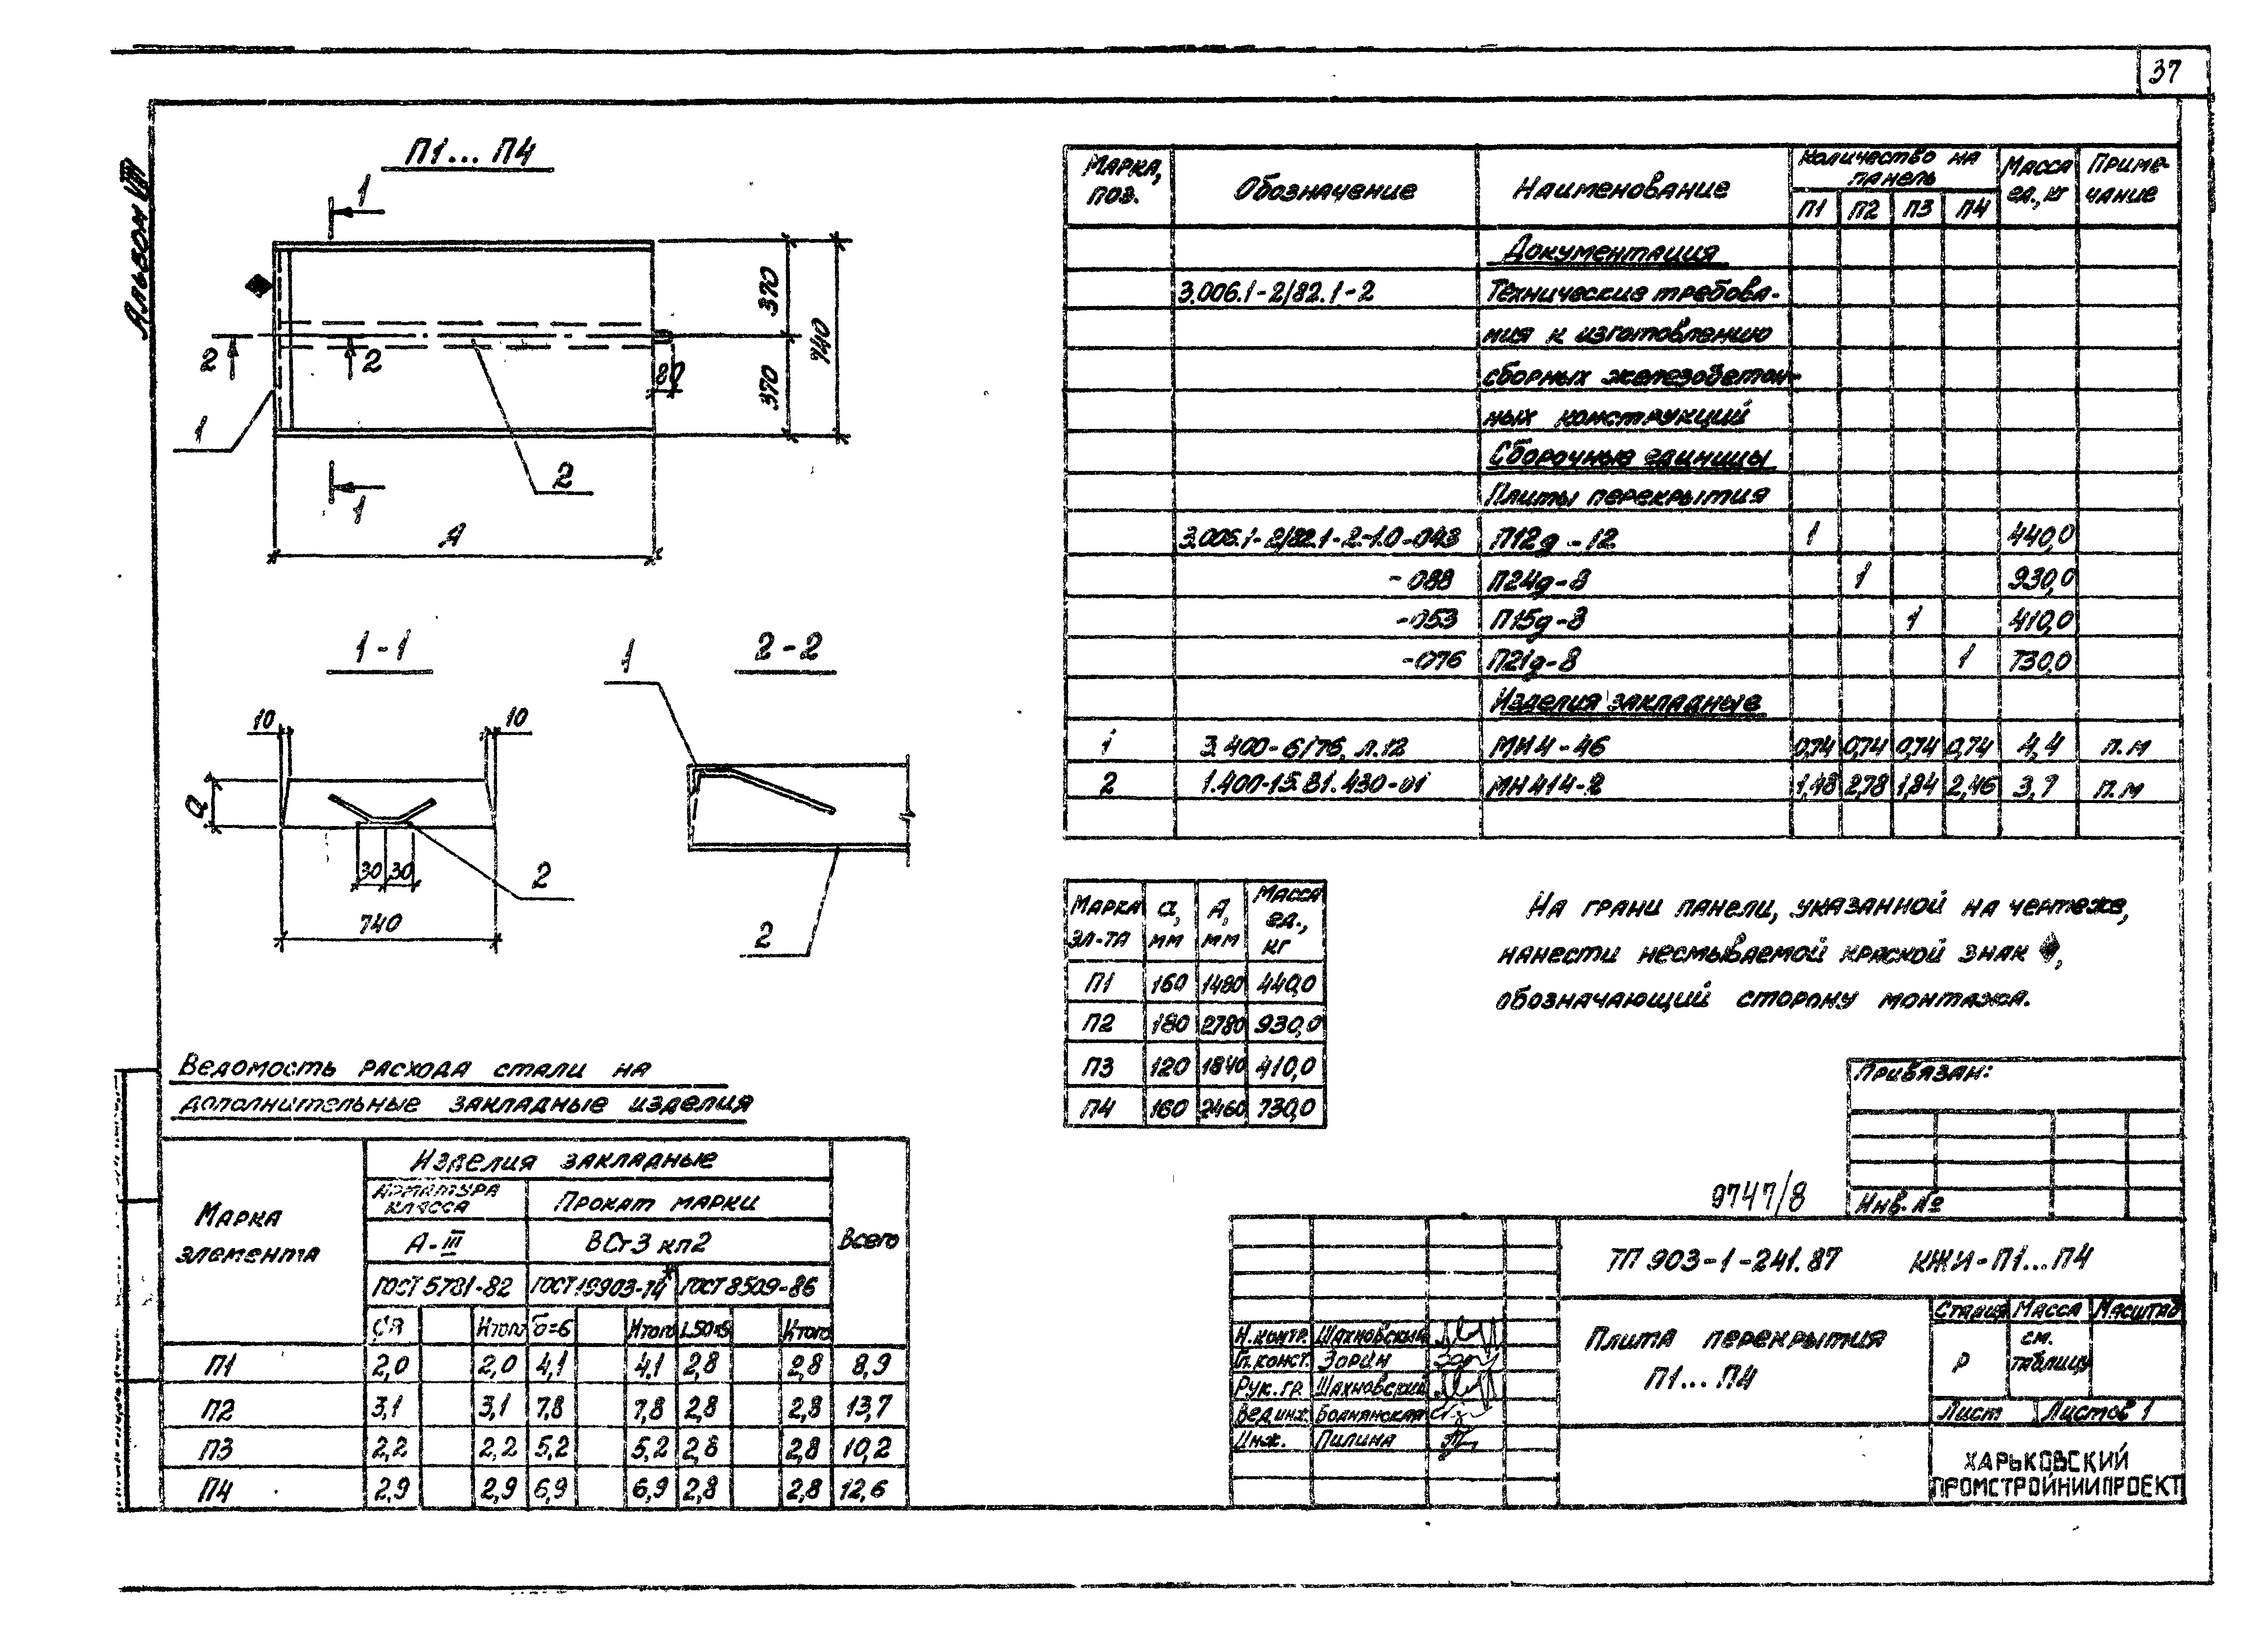 37
Альбом VIII
П1... П4
1
370
740
370
80
2 2
1
2
1
А
1-1
1
2-2
10 10
а
30 30
2
740
2
Марка, поз. Обозначение Наименование Количество на панель Масса ед., кг Приме-чание
П1 П2 П3 П4
Документация
3.006.1-2/82.1-2 Технические требова-
ния к изготовлению
сборных железобетон-
ных конструкций
Сборочные единицы
Плиты перекрытия
3.006.1-2/82.1-2-1.0-043 П12д-12 1 440,0
-088 П24д-8 1 930,0
-053 П15д-8 1 410,0
-076 П21д-8 1 730,0
Изделия закладные
1 3.400-6/76, л.12 МН4-46 0,74 0,74 0,74 0,74 4,4 п.м
2 1.400-15.В1.430-01 МН414-2 1,48 2,78 1,84 2,46 3,7 п.м
Марка эл-та а, мм А, мм Масса ед., кг
П1 160 1480 440,0
П2 180 2780 930,0
П3 120 1840 410,0
П4 160 2460 730,0
На грани панели, указанной на чертеже,
нанести несмываемой краской знак ◆,
обозначающий сторону монтажа.
Ведомость расхода стали на
дополнительные закладные изделия
Марка элемента Изделия закладные Всего
Арматура класса Прокат марки
А-III ВСт3 кп2
ГОСТ 5781-82 ГОСТ 19903-74* ГОСТ 8509-86
Итого δ=6 Итого L50×5 Итого
П1 2,0 2,0 4,1 4,1 2,8 2,8 8,9
П2 3,1 3,1 7,8 7,8 2,8 2,8 13,7
П3 2,2 2,2 5,2 5,2 2,8 2,8 10,2
П4 2,9 2,9 6,9 6,9 2,8 2,8 12,6
Привязан:
Инв. №
9747/8
ТП 903-1-241.87 КЖИ-П1...П4
Плита перекрытия
П1... П4
Стадия Масса Масштаб
Р см. таблицу
Лист Листов 1
Н.контр. Шахновский
Гл.конст. Зорин
Рук. гр. Шахновский
Вед.инж. Боднянская
Инж. Пилина
ХАРЬКОВСКИЙ
ПРОМСТРОЙНИИПРОЕКТ